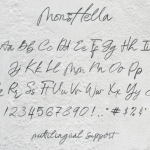 MonsHella
Aa Bb Cc Dd Ee Ff Gg Hh Ii
Jj Kk Ll Mm Nn Oo Pp
Qq Rr Ss Tt Uu Vv Ww Xx Yy
1234567890!..
multilingual support